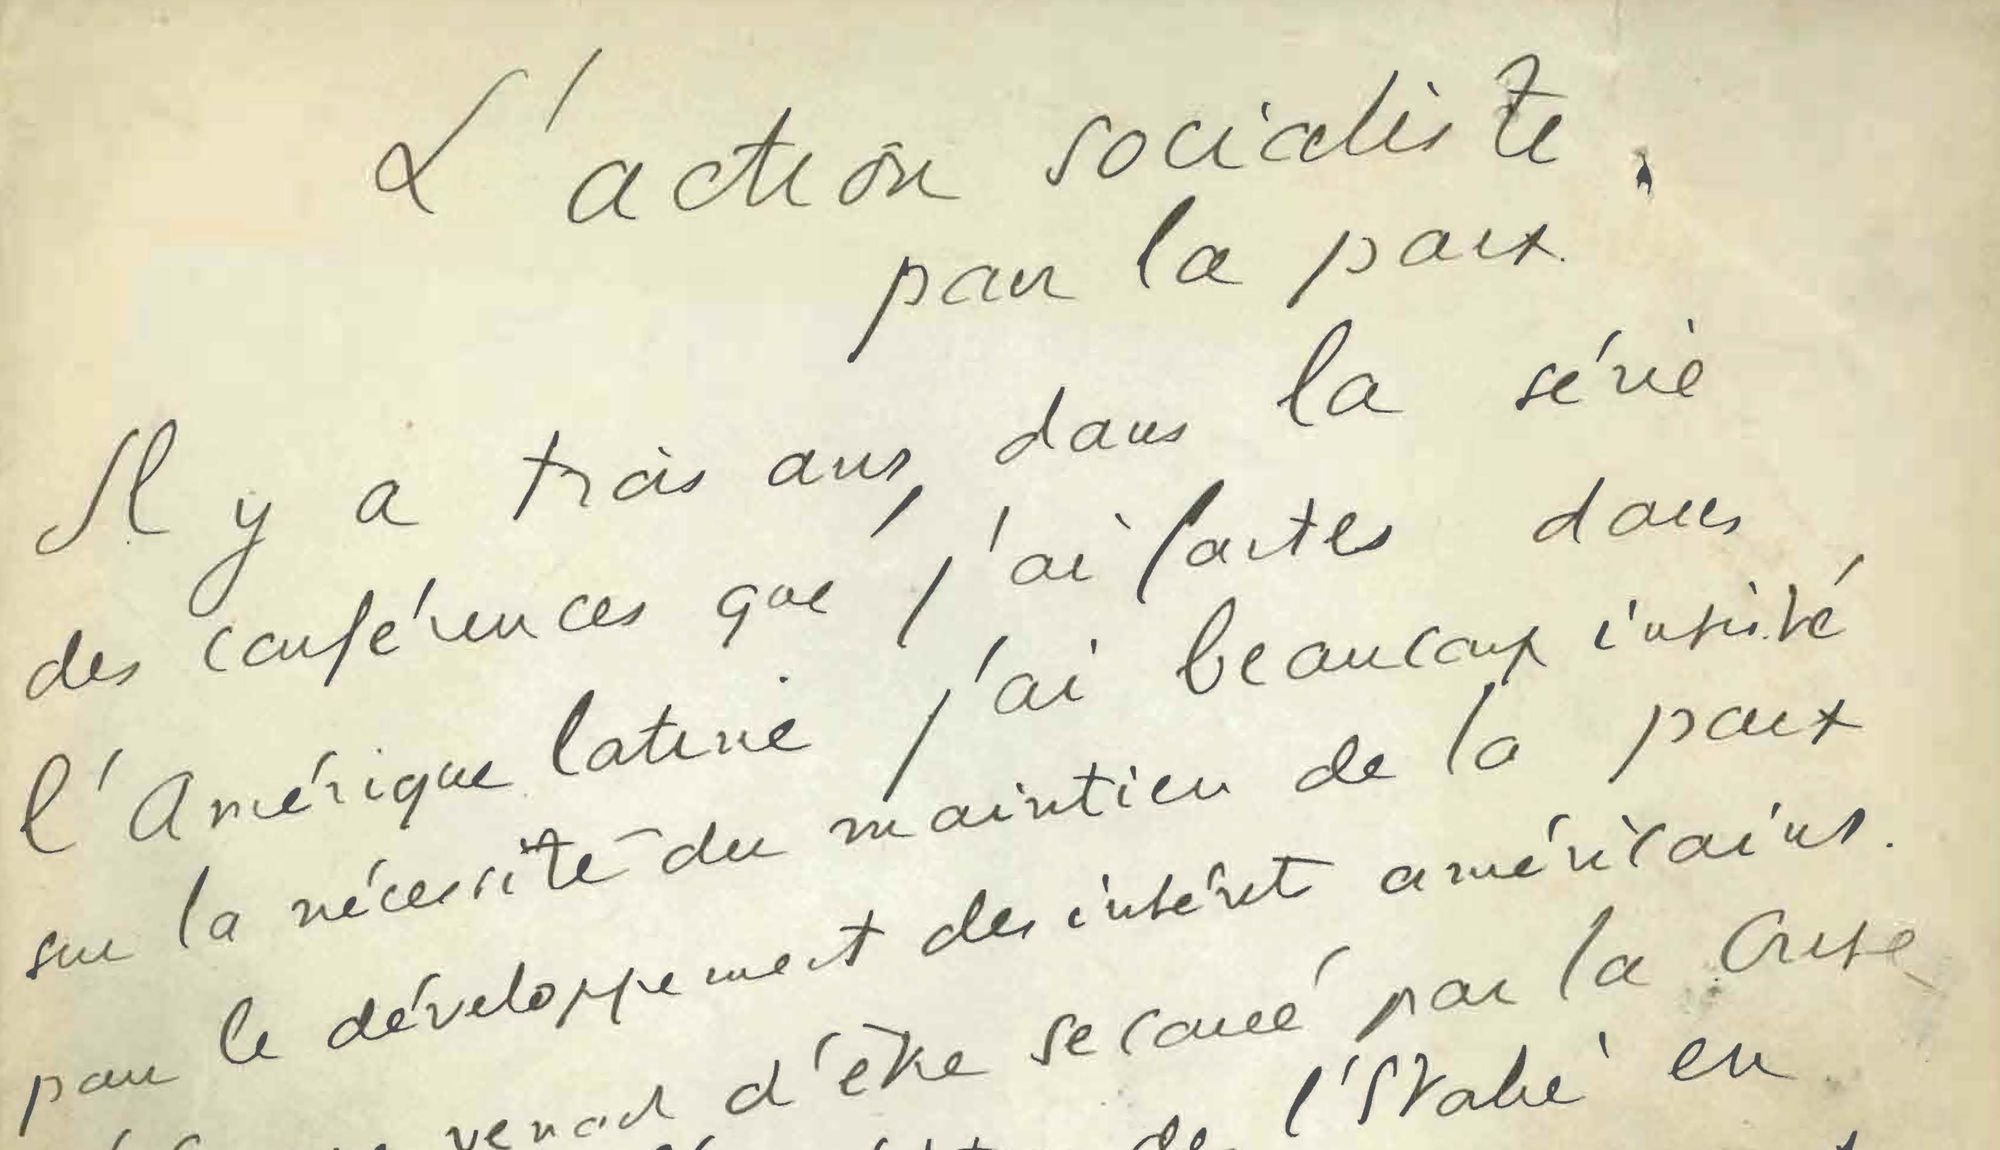 L'action socialiste
pour la paix.
Il y a trois ans, dans la série
des conférences que j'ai faites dans
l'Amérique latine j'ai beaucoup insisté
sur la nécessité du maintien de la paix
pour le développement des intérêts américains.
venait d'être secoué par la Crise
de l'Italie en